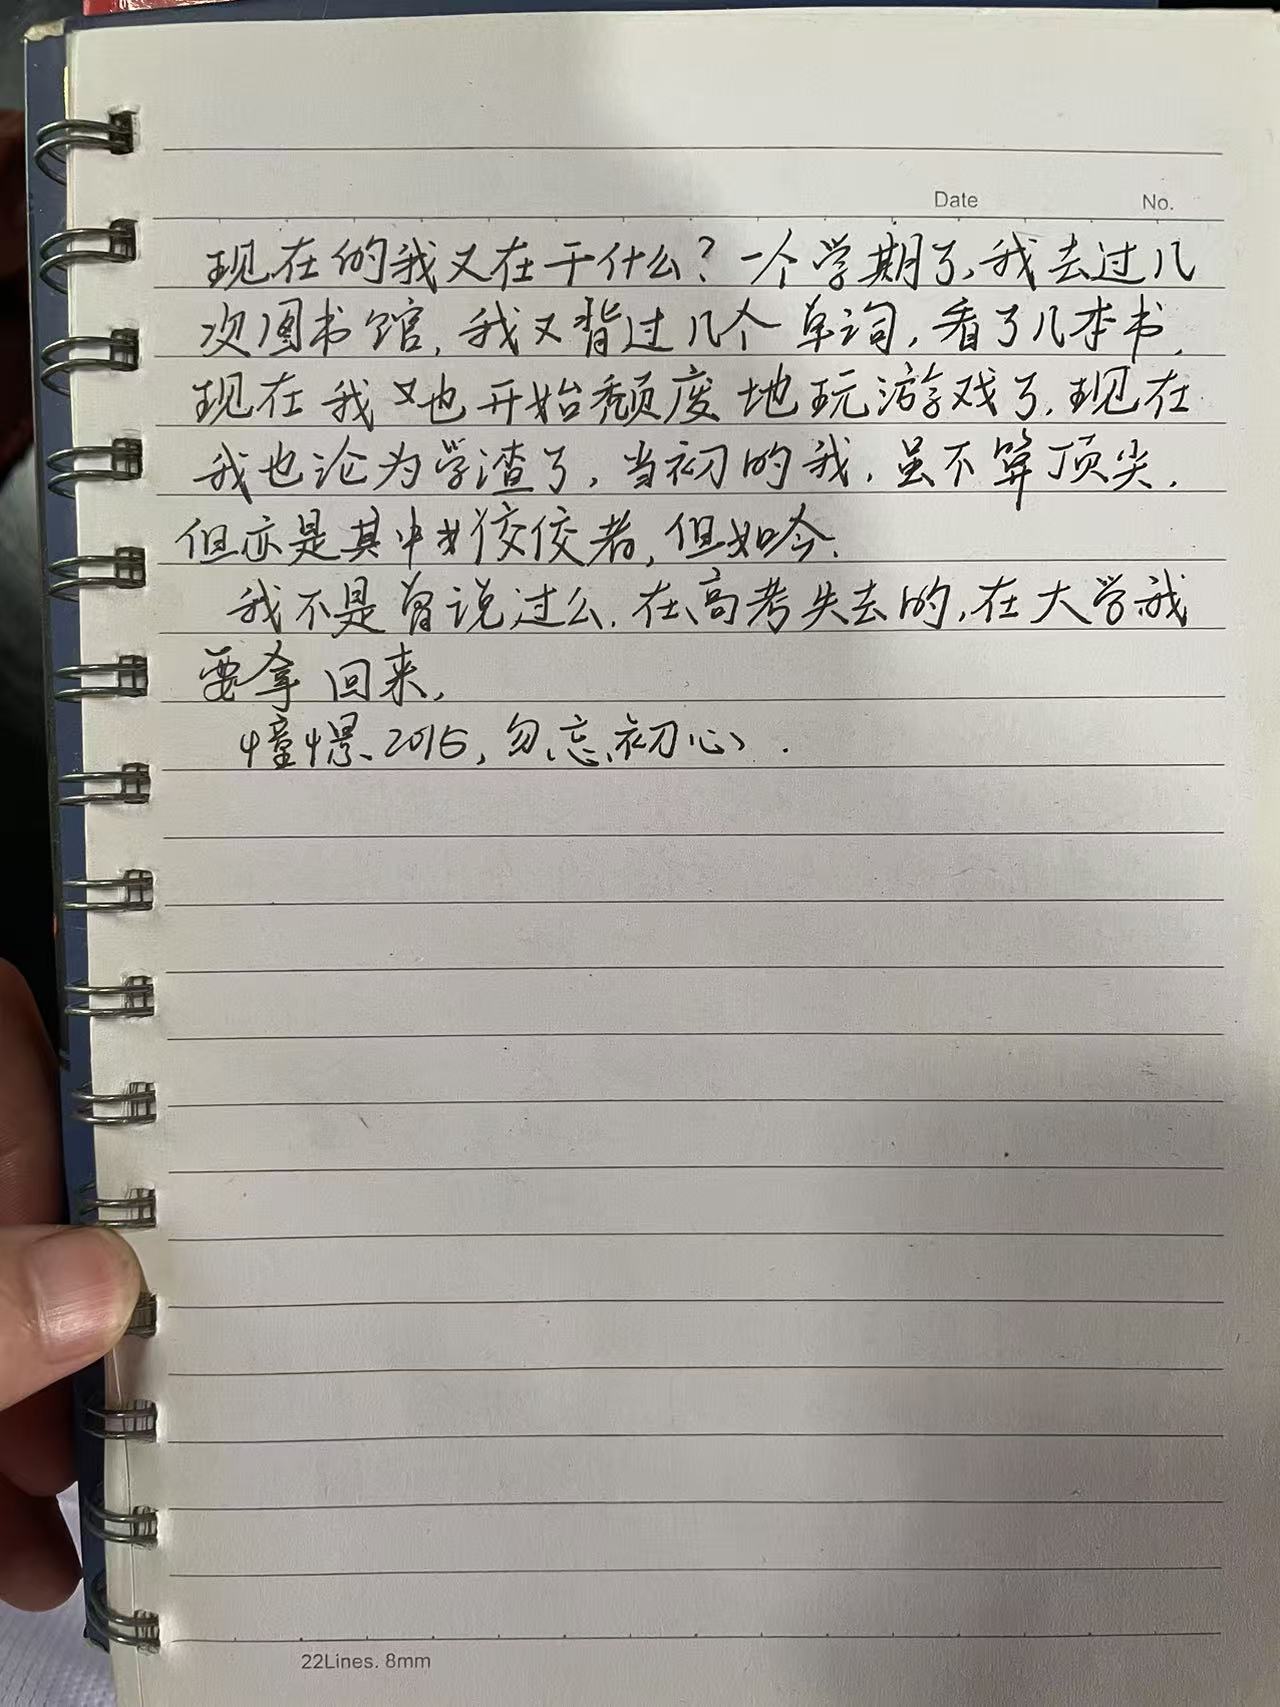 Date No.
现在的我又在干什么？一个学期了，我去过几
次图书馆，我又背过几个单词，看了几本书，
现在我又也开始颓废地玩游戏了，现在
我也沦为学渣了，当初的我，虽不算顶尖，
但亦是其中佼佼者，但如今，
我不是曾说过么，在高考失去的，在大学我
要拿回来，
憧憬、2016，勿忘初心、.
22Lines. 8mm